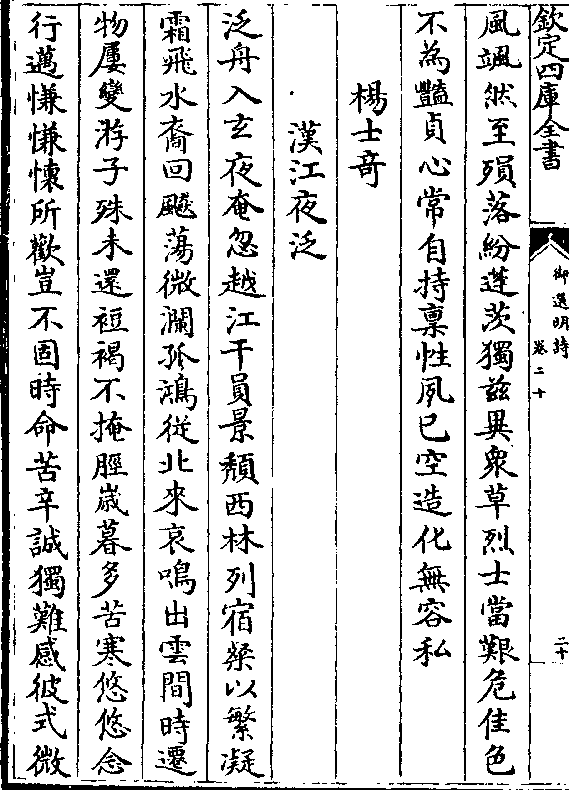 欽定四庫全書
御選明詩
卷二十
二十
風颯然至殞落紛蓬茨獨兹異衆草烈士當艱危佳色
不為豔貞心常自持稟性夙已空造化無容私
楊士竒
漢江夜泛
泛舟入玄夜奄忽越江干員景頹西林列宿粲以繁凝
霜飛水裔回飈蕩微瀾孤鴻從北來哀鳴出雲間時遷
物屢變游子殊未還裋褐不掩脛嵗暮多苦寒悠悠念
行邁慊慊懐所歡豈不固時命苦辛誠獨難感彼式微